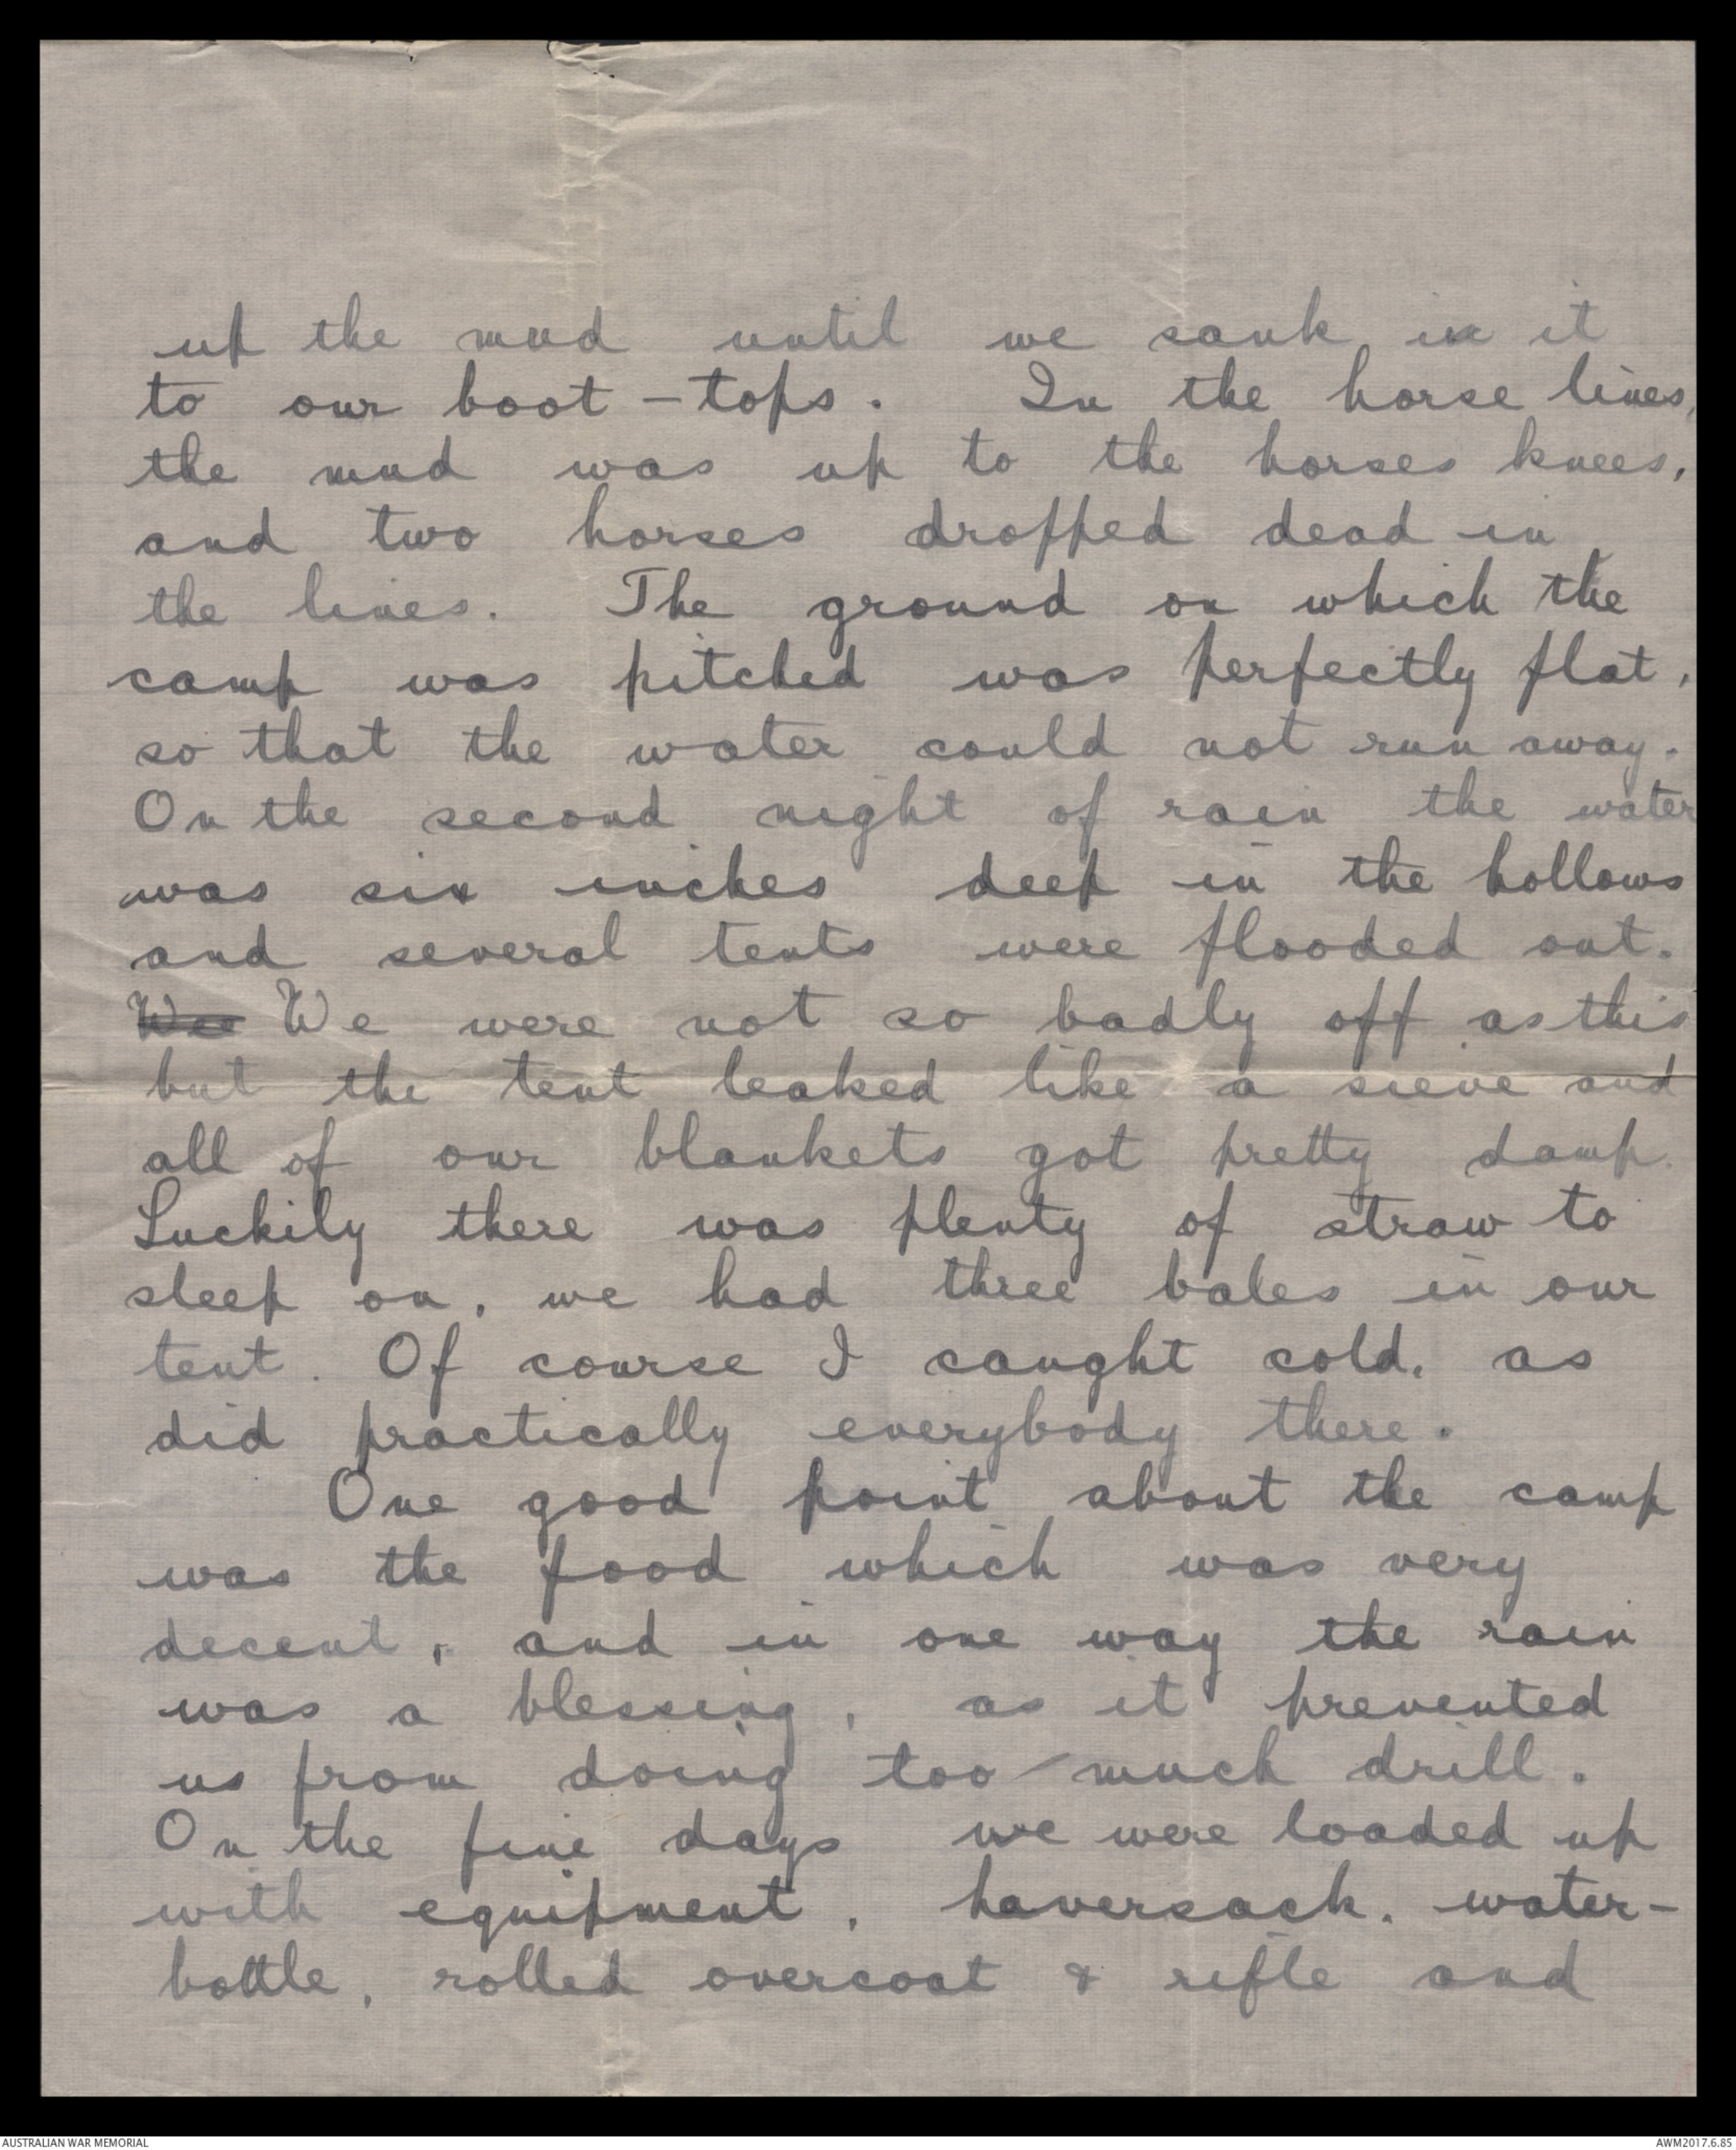 up the mud until we sank in it
to our boot-tops. In the horse lines,
the mud was up to the horses knees,
and two horses dropped dead in
the lines. The ground on which the
camp was pitched was perfectly flat,
so that the water could not run away.
On the second night of rain the water
was six inches deep in the hollows
and several tents were flooded out.
Wee We were not so badly off as this
but the tent leaked like a sieve and
all of our blankets got pretty damp.
Luckily there was plenty of straw to
sleep on, we had three bales in our
tent. Of course I caught cold, as
did practically everybody there.
One good point about the camp
was the food which was very
decent, and in one way the rain
was a blessing, as it prevented
us from doing too much drill.
On the fine days we were loaded up
with equipment, haversack, water-
bottle, rolled overcoat & rifle and
AUSTRALIAN WAR MEMORIAL
AWM2017.6.85